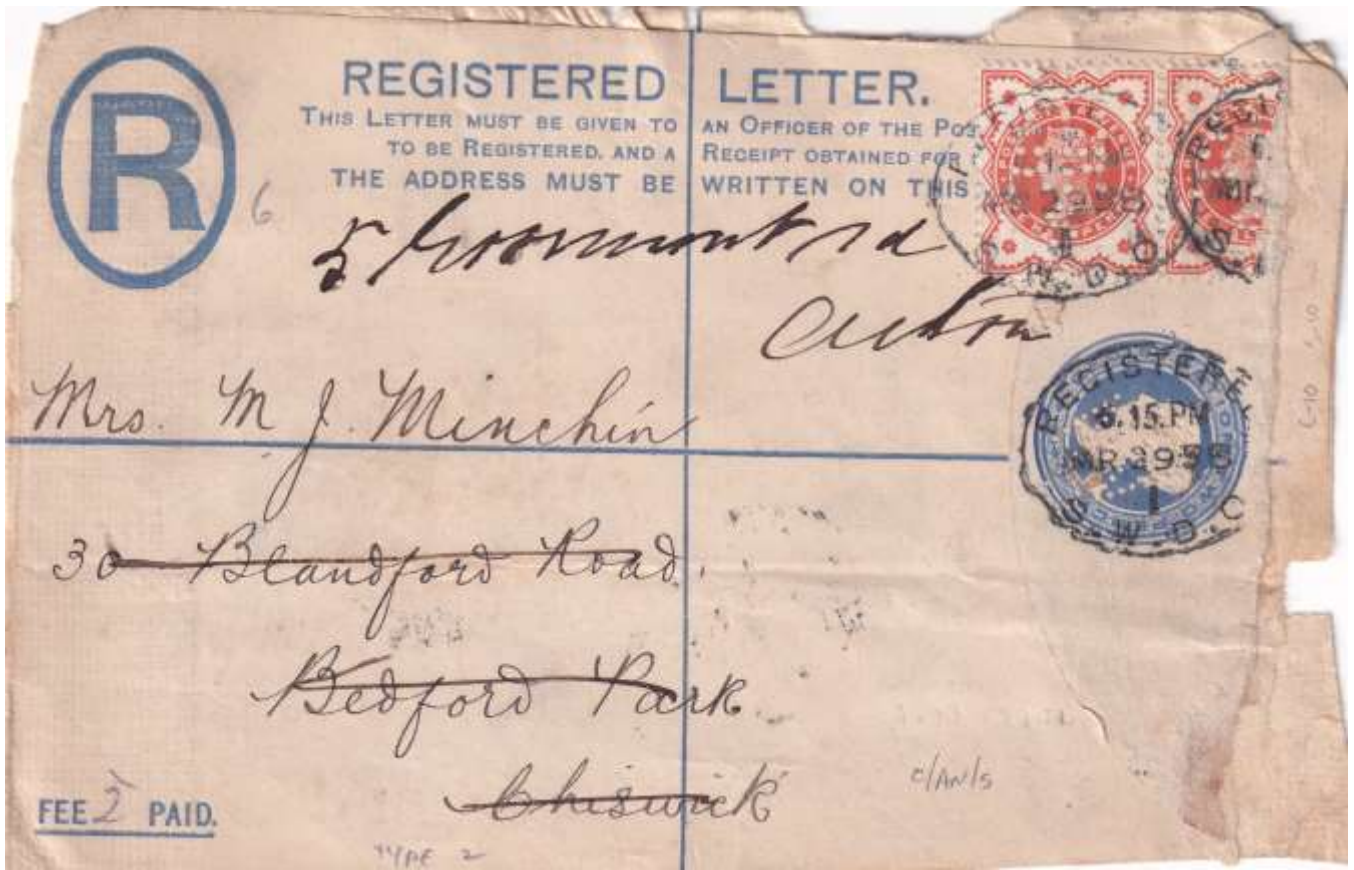 R
REGISTERED LETTER.
THIS LETTER MUST BE GIVEN TO AN OFFICER OF THE POS
TO BE REGISTERED, AND A RECEIPT OBTAINED FOR
THE ADDRESS MUST BE WRITTEN ON THIS
6
5 rd
Acton
Mrs. M J. Minchin
30 Blandford Road.
Bedford Park
Chiswick
REGISTERE
6.15.PM
MR 29 95
1
S.W.D.O
FEE 2 PAID.
TYPE 2
C/AN/S